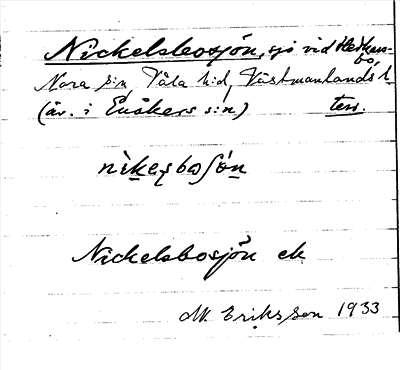 Nickelsbosjön, sjö vid Hedkers-
bo,
Nora s:n, Våla h:d, Västmanlands l.
(äv. i Enåkers s:n) terr.
nikesbosjön
Nickelsbosjön ek
M. Eriksson 1933